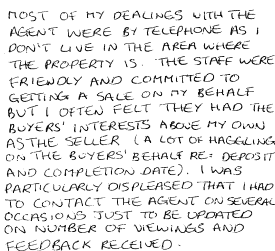 MOST OF MY DEALINGS WITH THE
AGENT WERE BY TELEPHONE AS I
DON'T LIVE IN THE AREA WHERE
THE PROPERTY IS. THE STAFF WERE
FRIENDLY AND COMMITTED TO
GETTING A SALE ON MY BEHALF
BUT I OFTEN FELT THEY HAD THE
BUYERS' INTERESTS ABOVE MY OWN
AS THE SELLER (A LOT OF HAGGLING
ON THE BUYERS' BEHALF RE: DEPOSIT
AND COMPLETION DATE). I WAS
PARTICULARLY DISPLEASED THAT I HAD
TO CONTACT THE AGENT ON SEVERAL
OCCASIONS JUST TO BE UPDATED
ON NUMBER OF VIEWINGS AND
FEEDBACK RECEIVED.